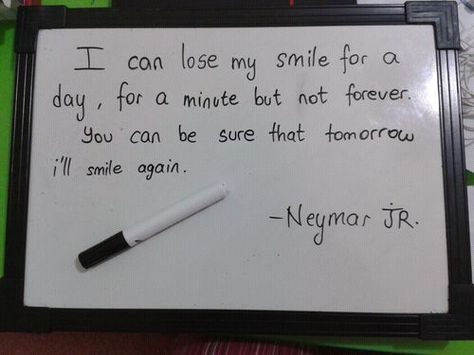 I can lose my smile for a
day, for a minute but not forever.
You can be sure that tomorrow
i'll smile again.
-Neymar JR.